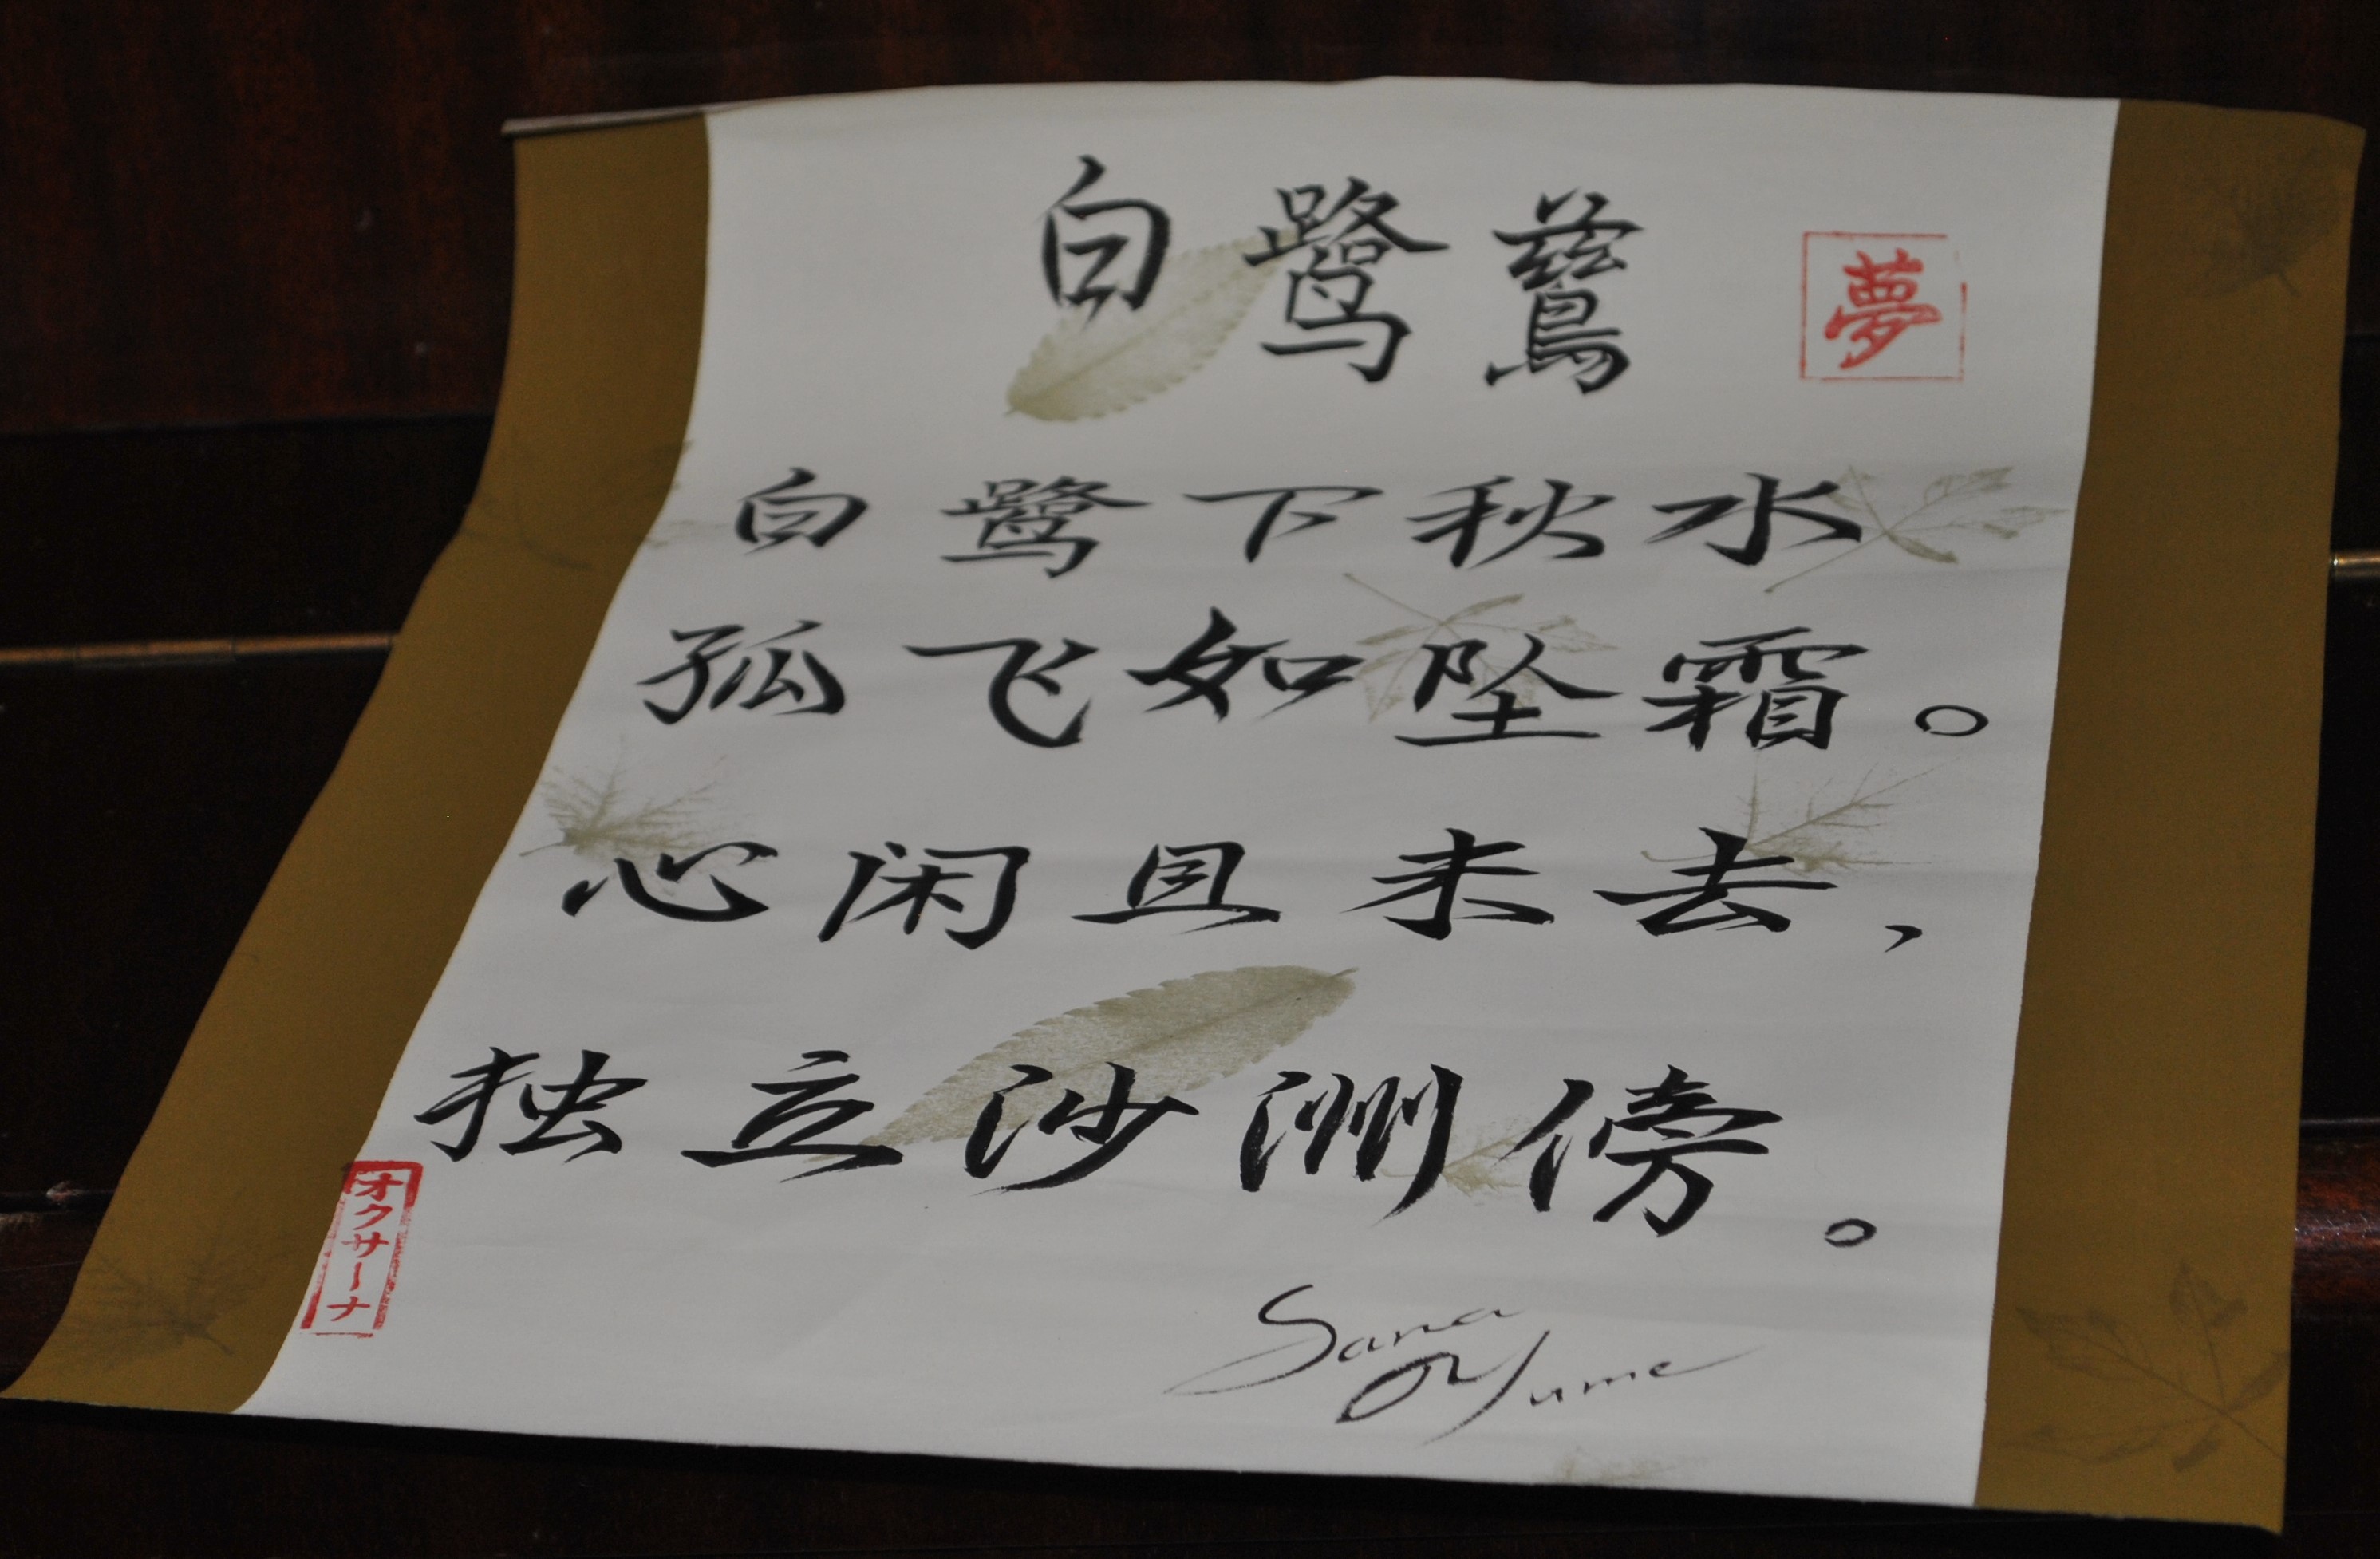 白鹭鶿
夢
白鹭下秋水
孤飞如坠霜。
心闲且未去，
独立沙洲傍。
オクサーナ
Sana
Yume